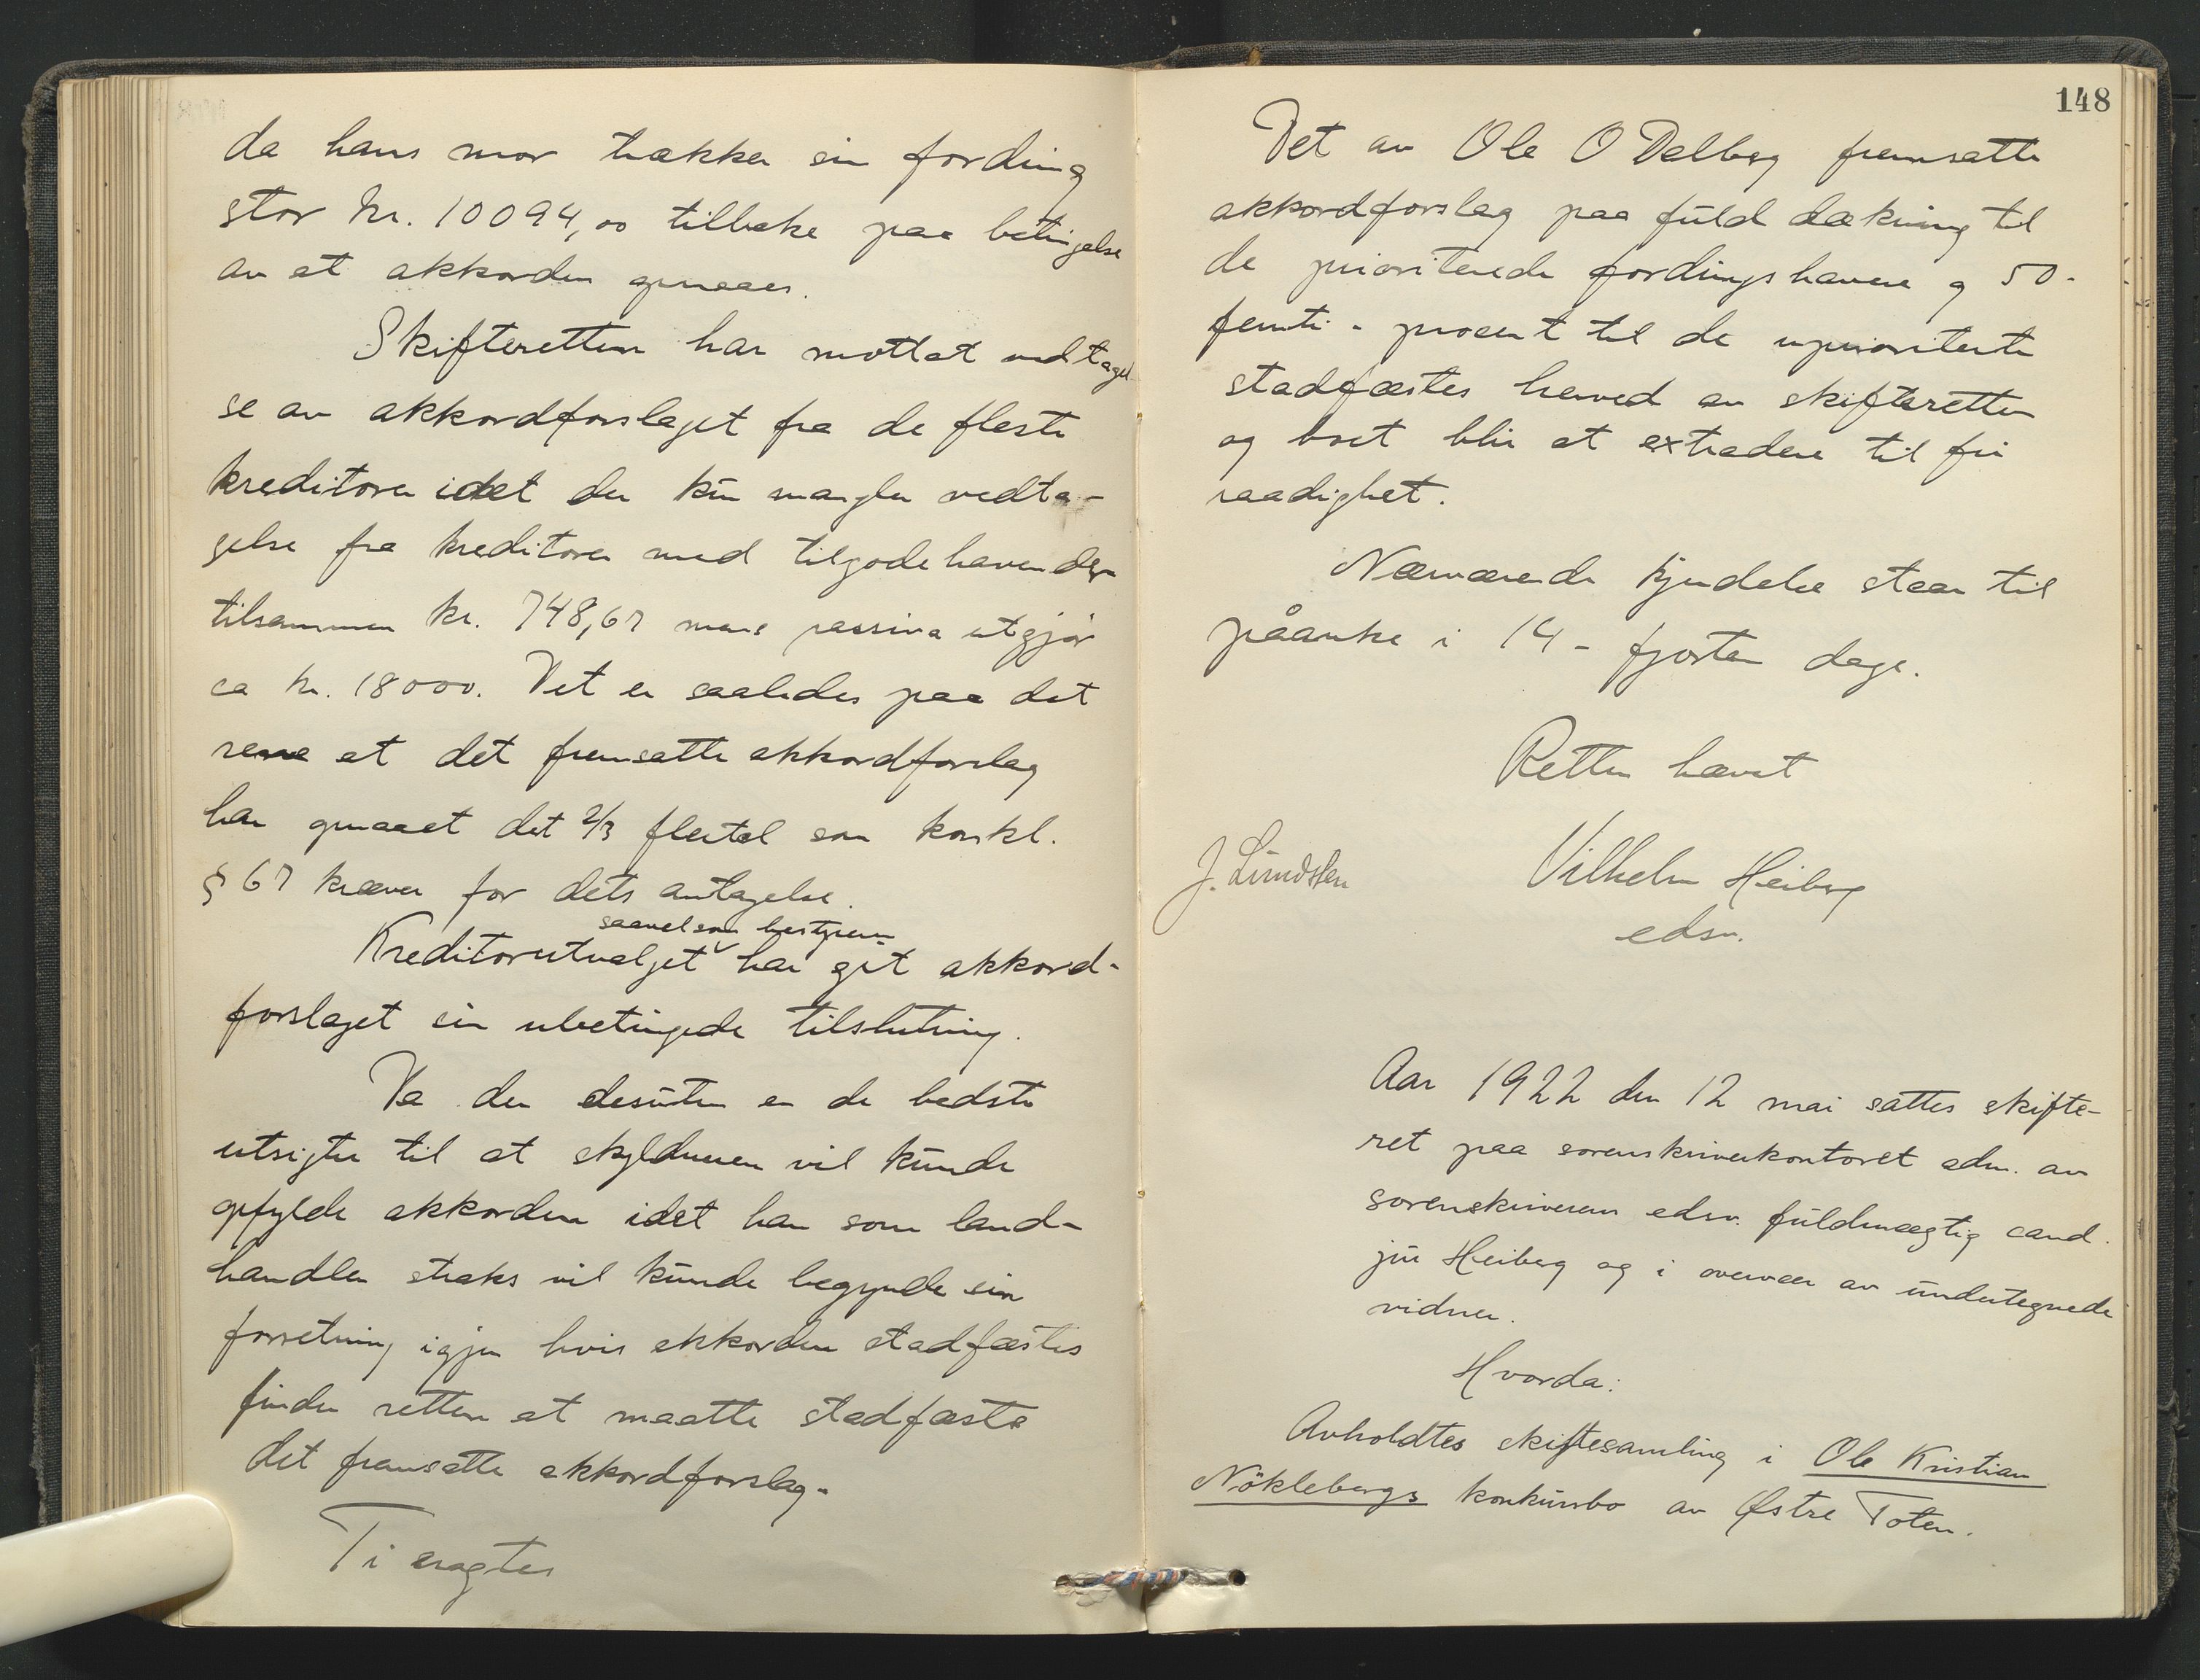 da hans mor trækker sin fordring
stor kr. 10094,00 tilbake paa betingelse
av at akkorden opnaaes.
Skifteretten har mottat vedtagel
se av akkordforslaget fra de fleste
kreditorer idet der kun mangler vedta-
gelse fra kreditorer med tilgodehavender
tilsammen kr. 748,67 mens passiva utgjør
ca kr. 18000. Det er saaledes paa det
rene at det fremsatte akkordforslag
har opnaaet det 2/3 flertal som konkl.
§ 67 kræver for dets antagelse.
saavelsom bestyreren
Kreditorutvalget har git akkord-
forslaget sin ubetingede tilslutning.
Da der desuten er de bedste
utsigter til at skyldneren vil kunde
opfylde akkorden idet han som land-
handler straks vil kunde begynde sin
forretning igjen hvis akkorden stadfæstes
finder retten at maatte stadfæste
det fremsatte akkordforslag.
Ti eragtes
148
Det av Ole O Delberg fremsatte
akkordforslag paa fuld dækning til
de prioriterede fordringshavere og 50-
femti - procent til de uprioriterte
stadfæstes herved av skifteretten
og boet blir at extradere til fri
raadighet.
Nærværende kjendelse staar til
påanke i 14 - fjorten dage.
Retten hævet
J. Lundsten Vilhelm Heiberg
edsv.
Aar 1922 den 12 mai sattes skifte-
ret paa sorenskriverkontoret adm. av
sorenskriverens edsv. fuldmægtig cand.
jur Heiberg og i overvær av undertegnede
vidner.
Hvorda:
Avholdtes skiftesamling i Ole Kristian
Nöklebergs konkursbo av Østre Toten.